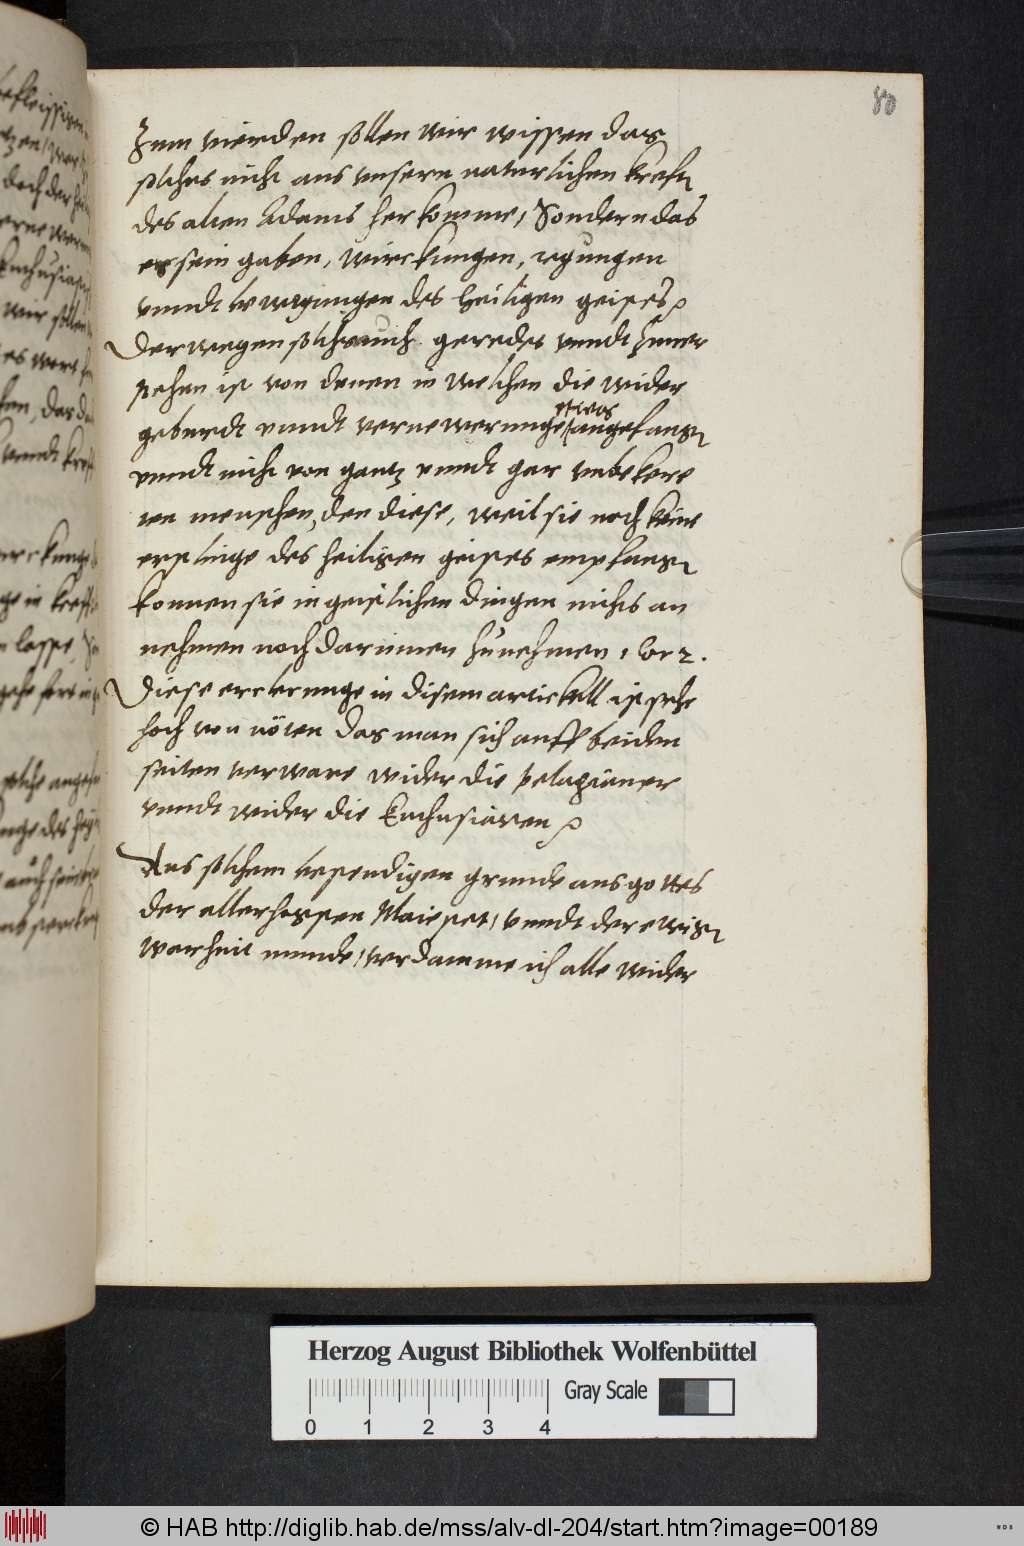 80
Zum vierden sollen wir wissen das
solches nicht aus unsern naturlichen kreft
des alten Adams her komme, Sondern das
es sein gaben, wirckungen, regungen
vnndt bewegungen des heiligen geistes
Derwegen solchs auch geredet vnndt zuuer
stehen ist von denen in welchen die wider
etwas
geburdt vnndt vernewerunge angefang
vnndt nicht von gantz vnndt gar vnbekere
ten menschen, den diese, weil sie noch keine
erstlinge des heiligen geistes empfang
konnen sie in geistlichen dingen nichts an
nehmen noch darinnen zunehmen, Cor 2.
Diese erclerunge in disem artickell ist sehr
hoch von nöten das man sich auff beiden
seiten verware wider die Pelagianer
vnndt wider die Enthusiasten
Aus solchem bestendigen grunde aus gottes
der allerhogsten Maiestet, vnndt der ewig
warheit munde, verdamme ich alle wider
Herzog August Bibliothek Wolfenbüttel
Gray Scale
0 1 2 3 4
© HAB http://diglib.hab.de/mss/alv-dl-204/start.htm?image=00189